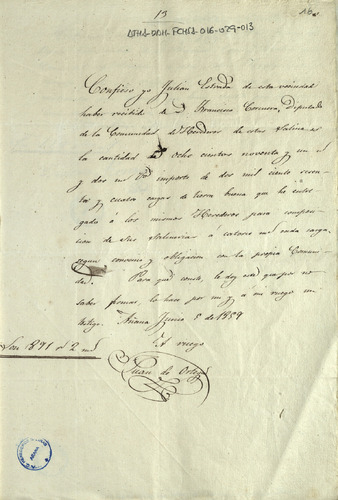 13
ATHA-DAH-FCHSA-016-029-013
Confieso yo Julian Estrada de esta vecindad
haber recibido de D. Francisco Cercuera, Diputado
de la Comunidad de Herederos de estas Salinas
la cantidad de ocho cientos noventa y un r.
y dos mr. importe de dos mil ciento sesen-
ta y cuatro cargas de tierra buena que he entre-
gado á los mismos Herederos para composi-
cion de sus Salineras á catorce mrs. cada carga
segun convenio y obligacion con la propia Comuni-
dad. Para que conste, le doy este que por no
saber firmar, lo hace por mí y á mi ruego un
testigo. Añana Junio 5 de 1859
A ruego
Son 891 r. 2 mrs
Juan de Ortiz
AÑANA